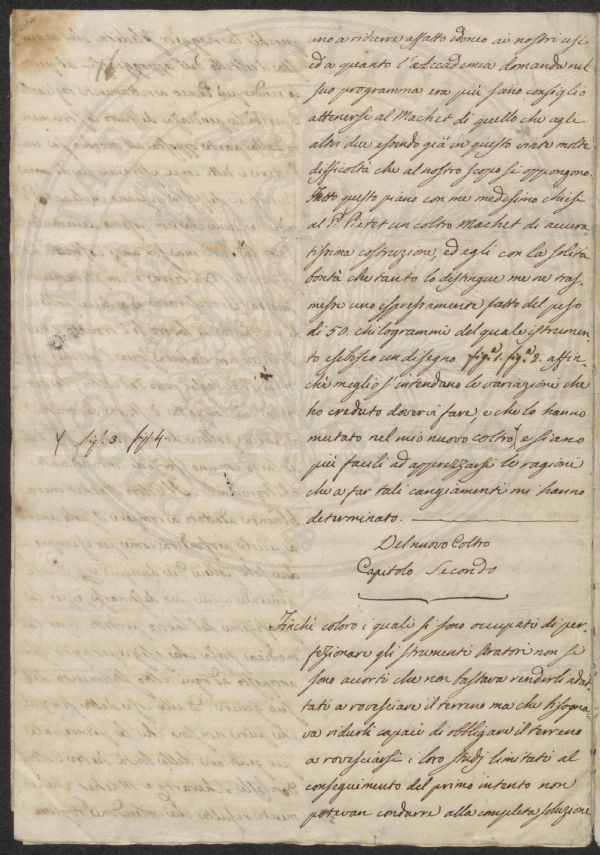 uno a ridurre affatto idoneo ai nostri usi
ed a quanto l'Accademia domanda nel
suo programma era più sano consiglio
attenersi al Machet di quello che agli
altri due essendo già in questo vinte molte
difficoltà che al nostro scopo si oppongono.
Fatto questo piano con me medesimo chiesi
al Pr. Pictet un coltro Machet di accura-
tissima costruzione, ed egli con la solita
bontà che tanto lo distingue me ne tras-
messe uno espressamente fatto del peso
di 50. chilogrammi del quale istrumen-
to esibisco un disegno fig.ª 1. fig.ª 2. affin-
chè meglio s'intendano le variazioni che
ho creduto dovervi fare, e che lo hanno
mutato nel mio nuovo coltro Y e siano
Y fig.ª 3. fig.ª 4.
più facili ad apprezzarsi le ragioni
che a far tali cangiamenti mi hanno
determinato.
Del nuovo Coltro
Capitolo Secondo
Finchè coloro i quali si sono occupati di per-
fezionare gli strumenti aratori non si
sono accorti che non bastava renderli adat-
tati a rovesciare il terreno ma che bisogna-
va ridurli capaci di obbligare il terreno
a rovesciarsi i loro studj limitati al
conseguimento del primo intento non
potevan condurre alla completa soluzione